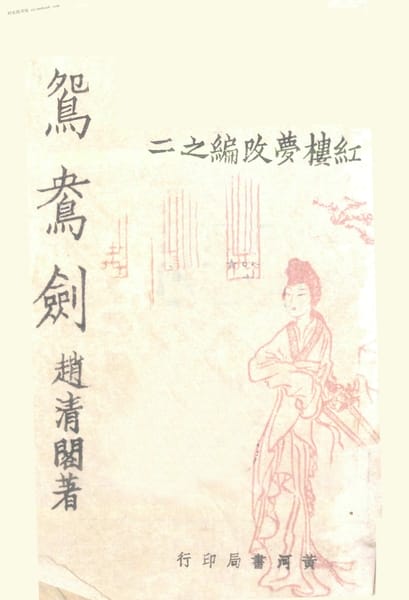 鴛鴦劍
趙清閣著
紅樓夢改編之二
黃河書局印行